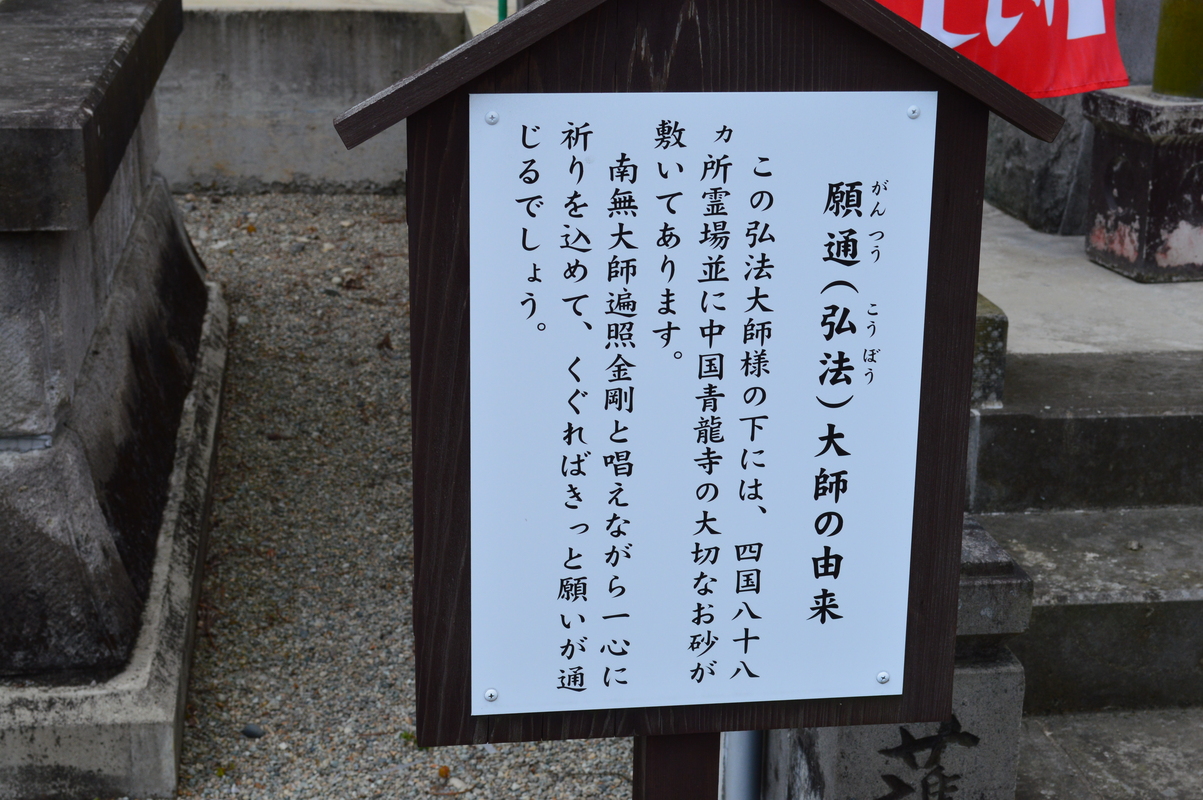 願通(弘法)大師の由来
がんつう
こうぼう
この弘法大師様の下には、四国八十八
ヵ所霊場並に中国青龍寺の大切なお砂が
敷いてあります。
南無大師遍照金剛と唱えながら一心に
祈りを込めて、くぐればきっと願いが通
じるでしょう。